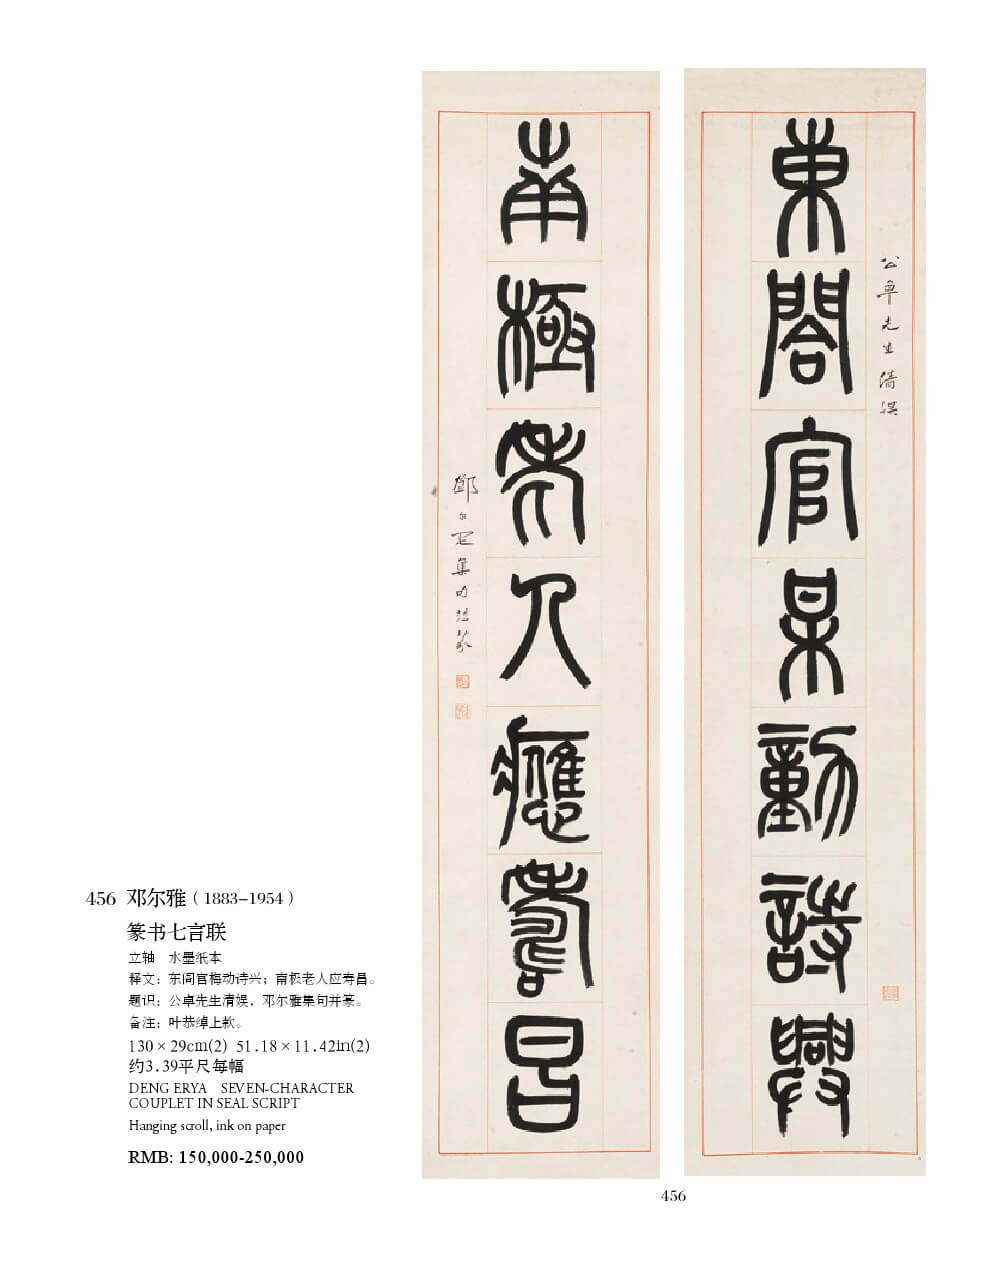 東閤官某動詩興
公卓先生清娛
南極老人應壽昌
鄧尒疋集句竝篆
456 邓尔雅（1883-1954）
篆书七言联
立轴 水墨纸本
释文：东阁官梅动诗兴；南极老人应寿昌。
题识：公卓先生清娱，邓尔雅集句并篆。
备注：叶恭绰上款。
130×29cm(2) 51.18×11.42in(2)
约3.39平尺每幅
DENG ERYA SEVEN-CHARACTER
COUPLET IN SEAL SCRIPT
Hanging scroll, ink on paper
RMB: 150,000-250,000
456